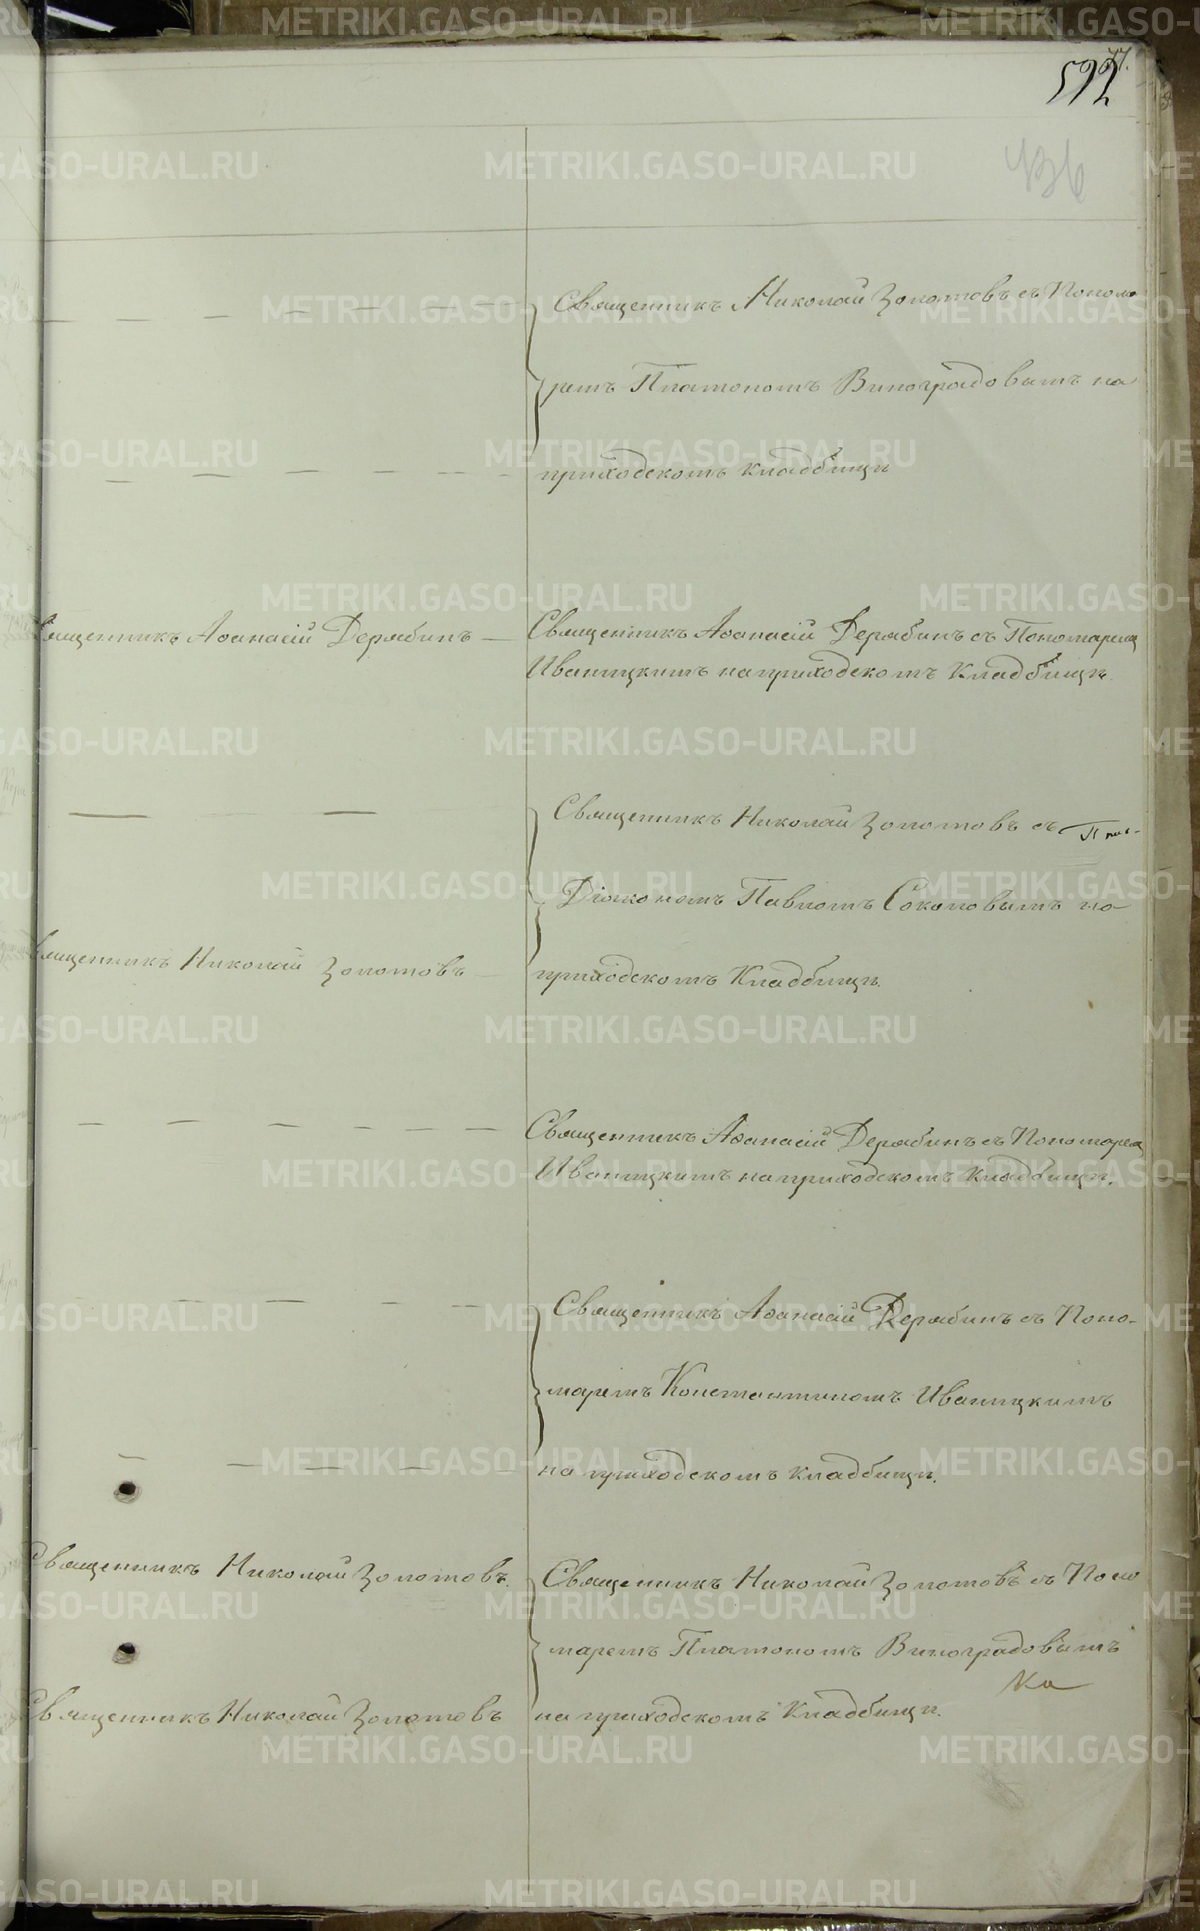 592
77.
436
Священникъ Николай Золотовъ съ Понома
ремъ Платономъ Виноградовымъ на
приходскомъ кладбищѣ
Священникъ Аѳанасій Дерябинъ
Священникъ Аѳанасій Дерябинъ съ Пономаремъ
Иваницкимъ на приходскомъ Кладбищѣ.
Священникъ Николай Золотовъ съ
Діакономъ Павломъ Соколовымъ на
Священникъ Николай Золотовъ
приходскомъ Кладбищѣ.
Священникъ Аѳанасій Дерябинъ съ Пономаремъ
Иваницкимъ на приходскомъ Кладбищѣ.
Священникъ Аѳанасій Дерябинъ съ Поно-
маремъ Константиномъ Иваницкимъ
на приходскомъ кладбищѣ.
Священникъ Николай Золотовъ.
Священникъ Николай Золотовъ съ Поно
маремъ Платономъ Виноградовымъ
Ка
Священникъ Николай Золотовъ
на приходскомъ Кладбищѣ.
METRIKI.GASO-URAL.RU